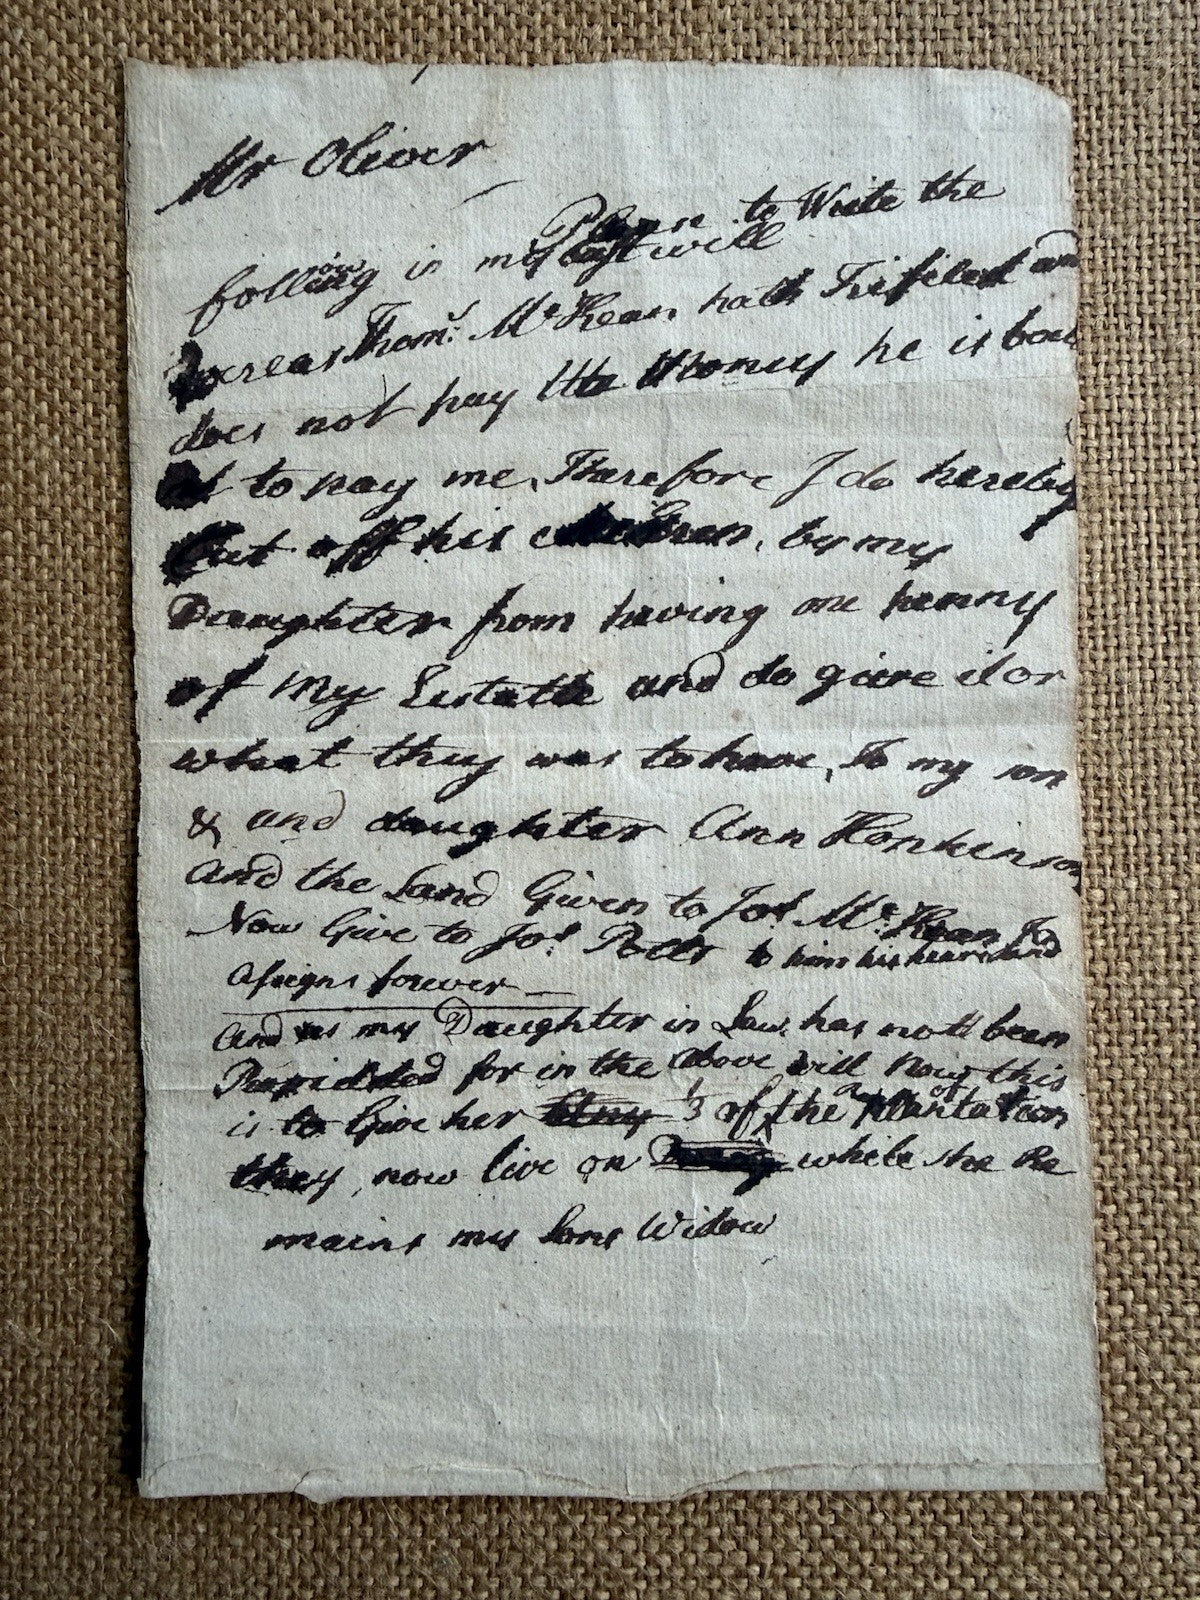 Mr Oliver
Please to Write the
following in my last will
Whereas Thoms. Mc.Kean hath Trifiled and
does not pay the Moneys he is bou
to pay me, Therefore I do hereby
Cut off his children, by my
Daughter from having one penny
of My Estatte and do give it or
what they was to have, To my son
& and daughter Ann Hopkinson
and the Land Given to Jos. Mc.Kean I
Now Give to Jos. Potts to him his heirs and
Asigns forever —
and as my Daughter in Law, has nott been
Provided for in the above will Now this
is to Give her 1/3 of the plantation
they now live on while she Re
mains my Sons Widow